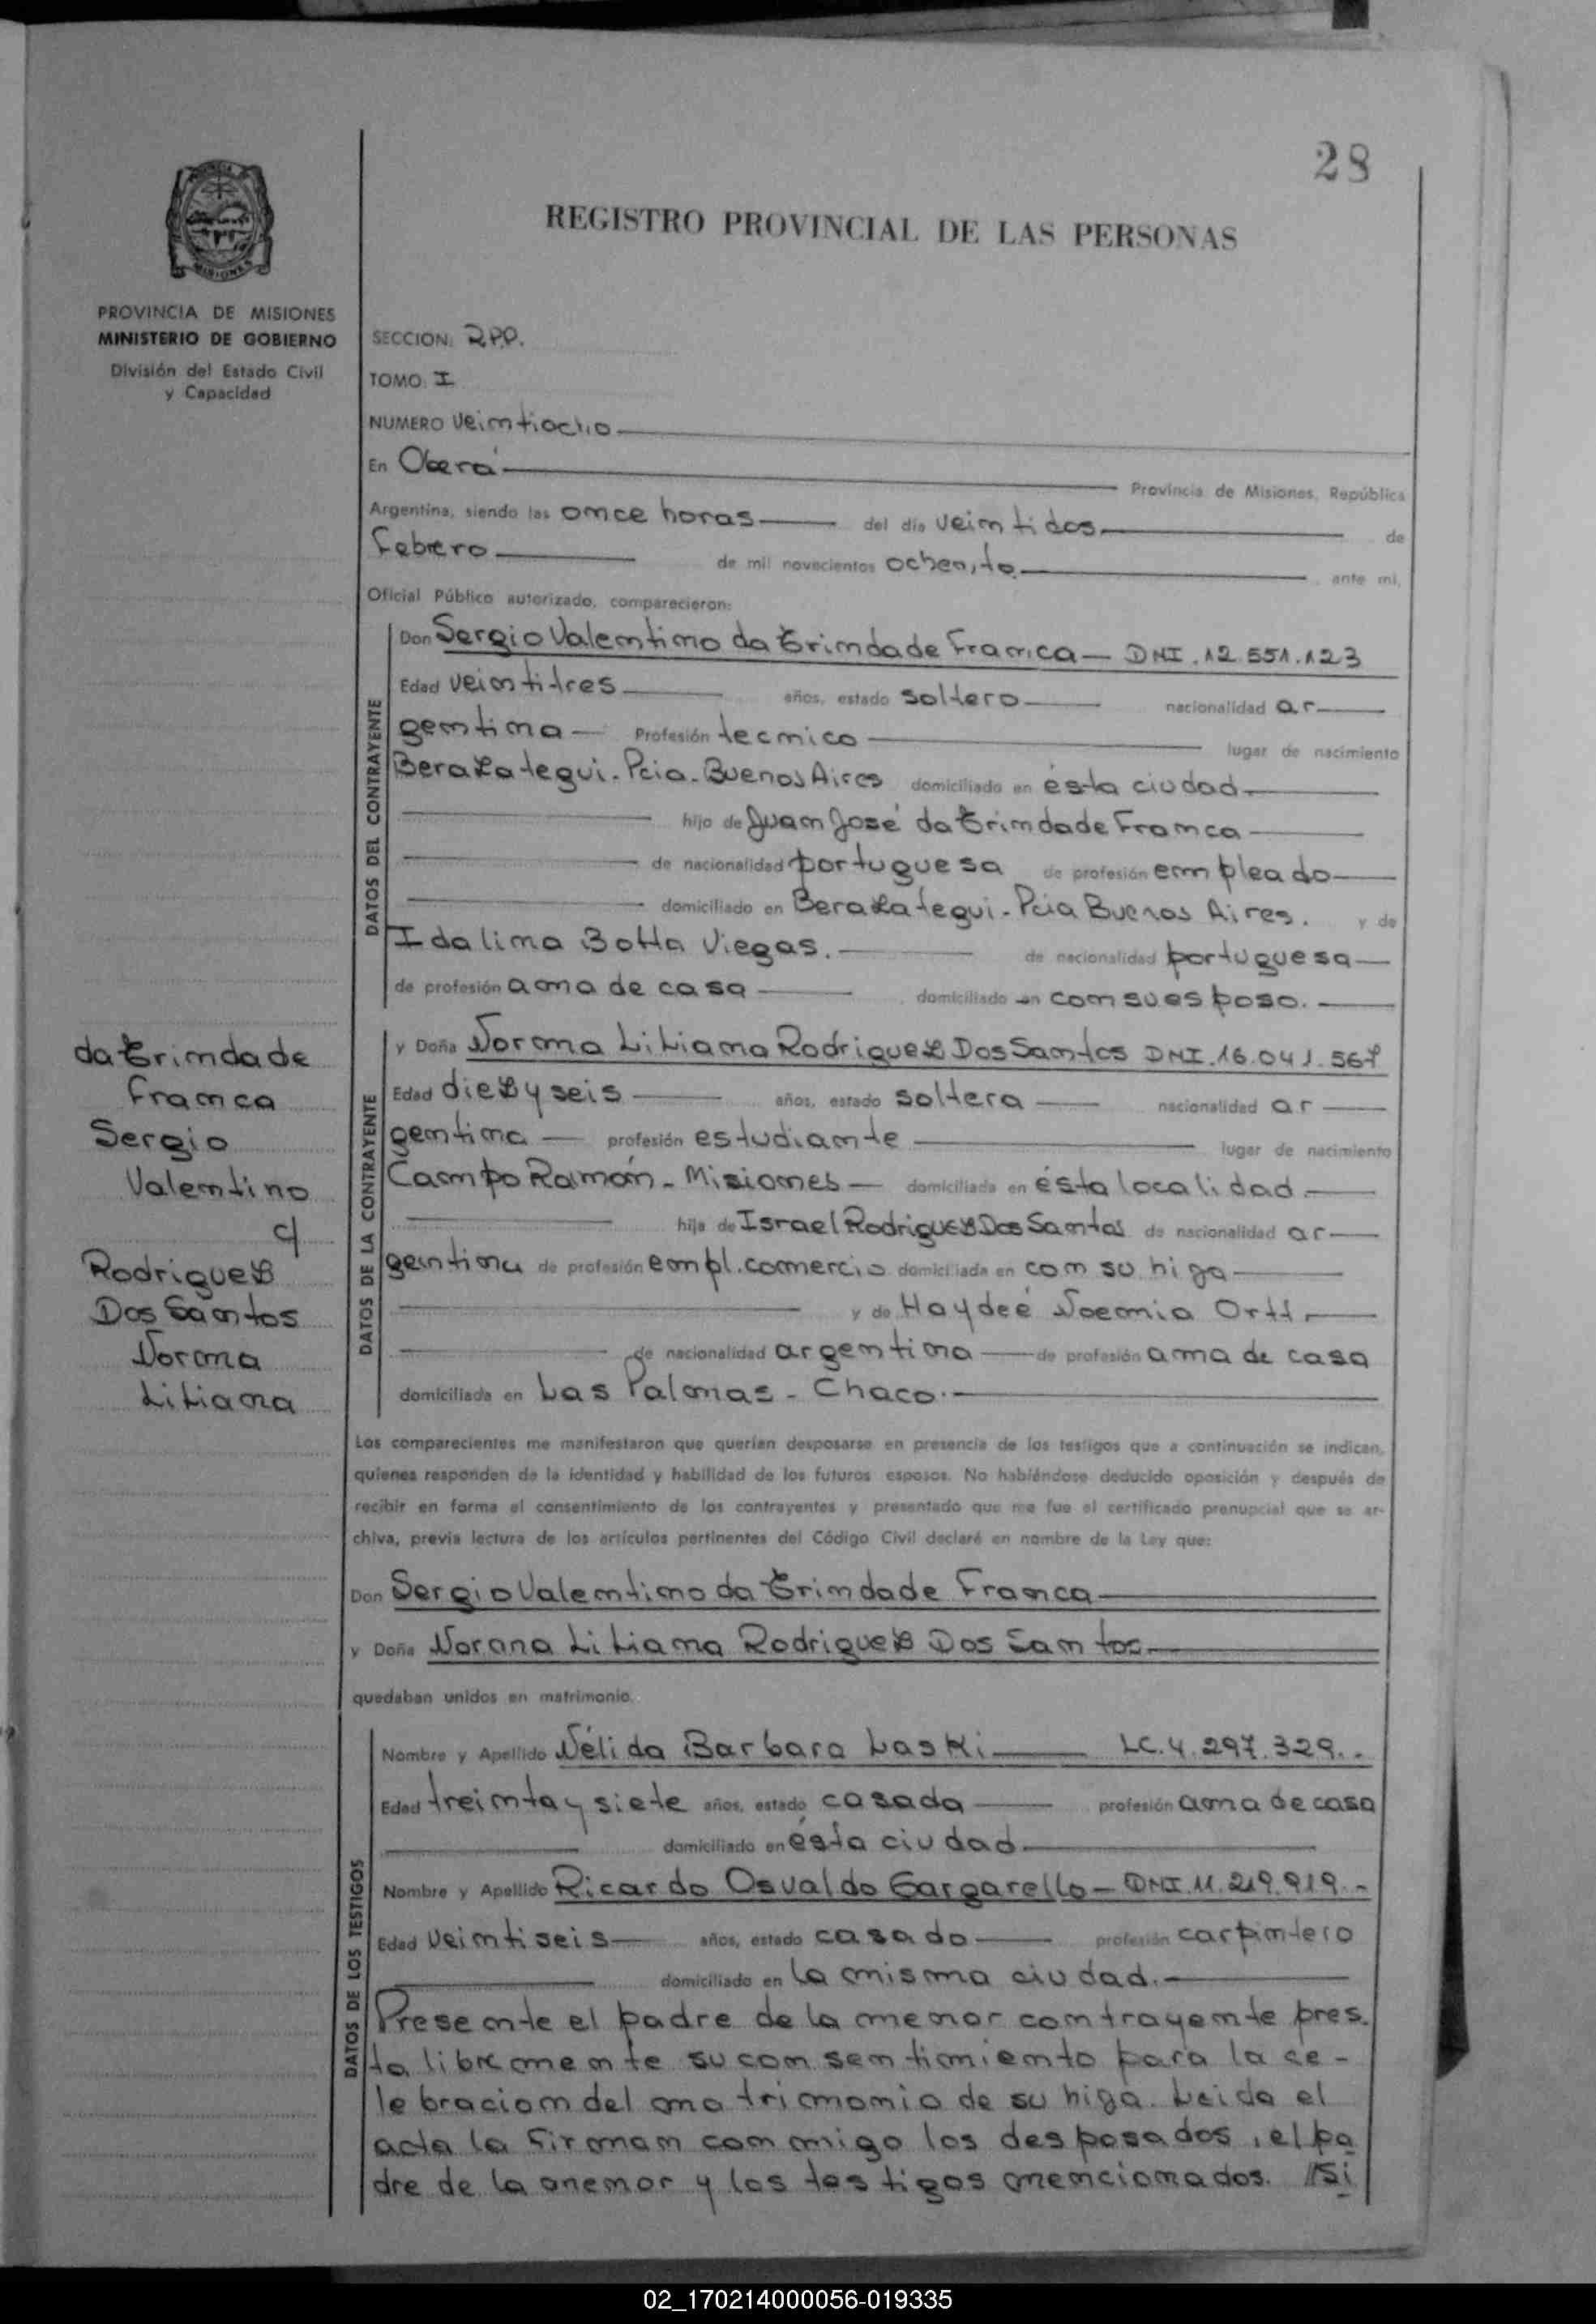 28
REGISTRO PROVINCIAL DE LAS PERSONAS
MISIONES
PROVINCIA DE MISIONES
MINISTERIO DE GOBIERNO
División del Estado Civil
y Capacidad
SECCION: R.P.P.
TOMO: I
NUMERO veintiocho
En Oberá
Provincia de Misiones, República
Argentina, siendo las once horas del día veintidos de
Febrero de mil novecientos ochenta ante mi,
Oficial Público autorizado, comparecieron:
DATOS DEL CONTRAYENTE
Don Sergio Valentino da Trindade Franca — DNI. 12.551.123
Edad veintitres años, estado soltero nacionalidad ar
gentina — Profesión tecnico lugar de nacimiento
Berazategui. Pcia. Buenos Aires domiciliado en ésta ciudad
hijo de Juan José da Trindade Franca
de nacionalidad portuguesa de profesión empleado
domiciliado en Berazategui. Pcia Buenos Aires. y de
Idalina Botta Viegas. de nacionalidad portuguesa
de profesión ama de casa domiciliado en con su esposo.
da Trindade
Franca
Sergio
Valentino
c/
Rodriguez
Dos Santos
Norma
Liliana
DATOS DE LA CONTRAYENTE
y Doña Norma Liliana Rodriguez Dos Santos DNI. 16.041.567
Edad diez y seis años, estado soltera nacionalidad ar
gentina — profesión estudiante lugar de nacimiento
Campo Ramón - Misiones — domiciliada en ésta localidad
hija de Israel Rodriguez Dos Santos de nacionalidad ar
gentina de profesión empl. comercio domiciliada en con su higa
y de Haydeé Noemia Ortt.
de nacionalidad argentina — de profesión ama de casa
domiciliada en Las Palmas - Chaco.
Los comparecientes me manifestaron que querían desposarse en presencia de los testigos que a continuación se indican,
quienes responden de la identidad y habilidad de los futuros esposos. No habiéndose deducido oposición y después de
recibir en forma el consentimiento de los contrayentes y presentado que me fue el certificado prenupcial que se ar-
chiva, previa lectura de los artículos pertinentes del Código Civil declaré en nombre de la Ley que:
Don Sergio Valentino da Trindade Franca
y Doña Norma Liliana Rodriguez Dos Santos
quedaban unidos en matrimonio.
DATOS DE LOS TESTIGOS
Nombre y Apellido Nélida Barbara Laski LC. 4.297.329.
Edad treinta y siete años, estado casada profesión ama de casa
domiciliado en ésta ciudad
Nombre y Apellido Ricardo Osvaldo Gargarello — DNI. 11.219.919.-
Edad veintiseis años, estado casado profesión carpintero
domiciliado en la misma ciudad.
Presente el padre de la menor contrayente pres.
ta libremente su consentimiento para la ce-
lebracion del matrimonio de su higa. Leida el
acta la firman conmigo los desposados, el pa
dre de la menor y los testigos mencionados. //Si
02_170214000056-019335